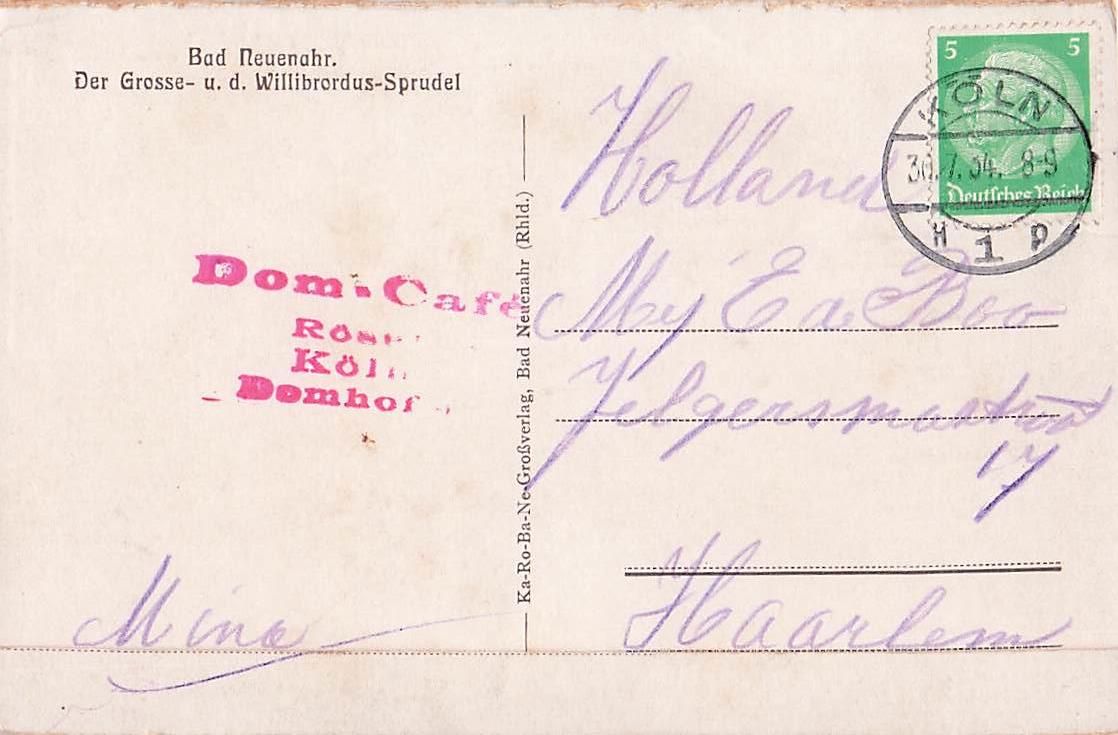 Bad Neuenahr.
Der Grosse- u. d. Willibrordus-Sprudel
5 5
KÖLN
30.7.34. 8-9
Deutsches Reich
H 1 p
Dom-Café
Köln
Domhof
Ka-Ro-Ba-Ne-Großverlag, Bad Neuenahr (Rhld.)
Holland
Mej E a Boo
Jelgersmastraat
17
Haarlem
Mina